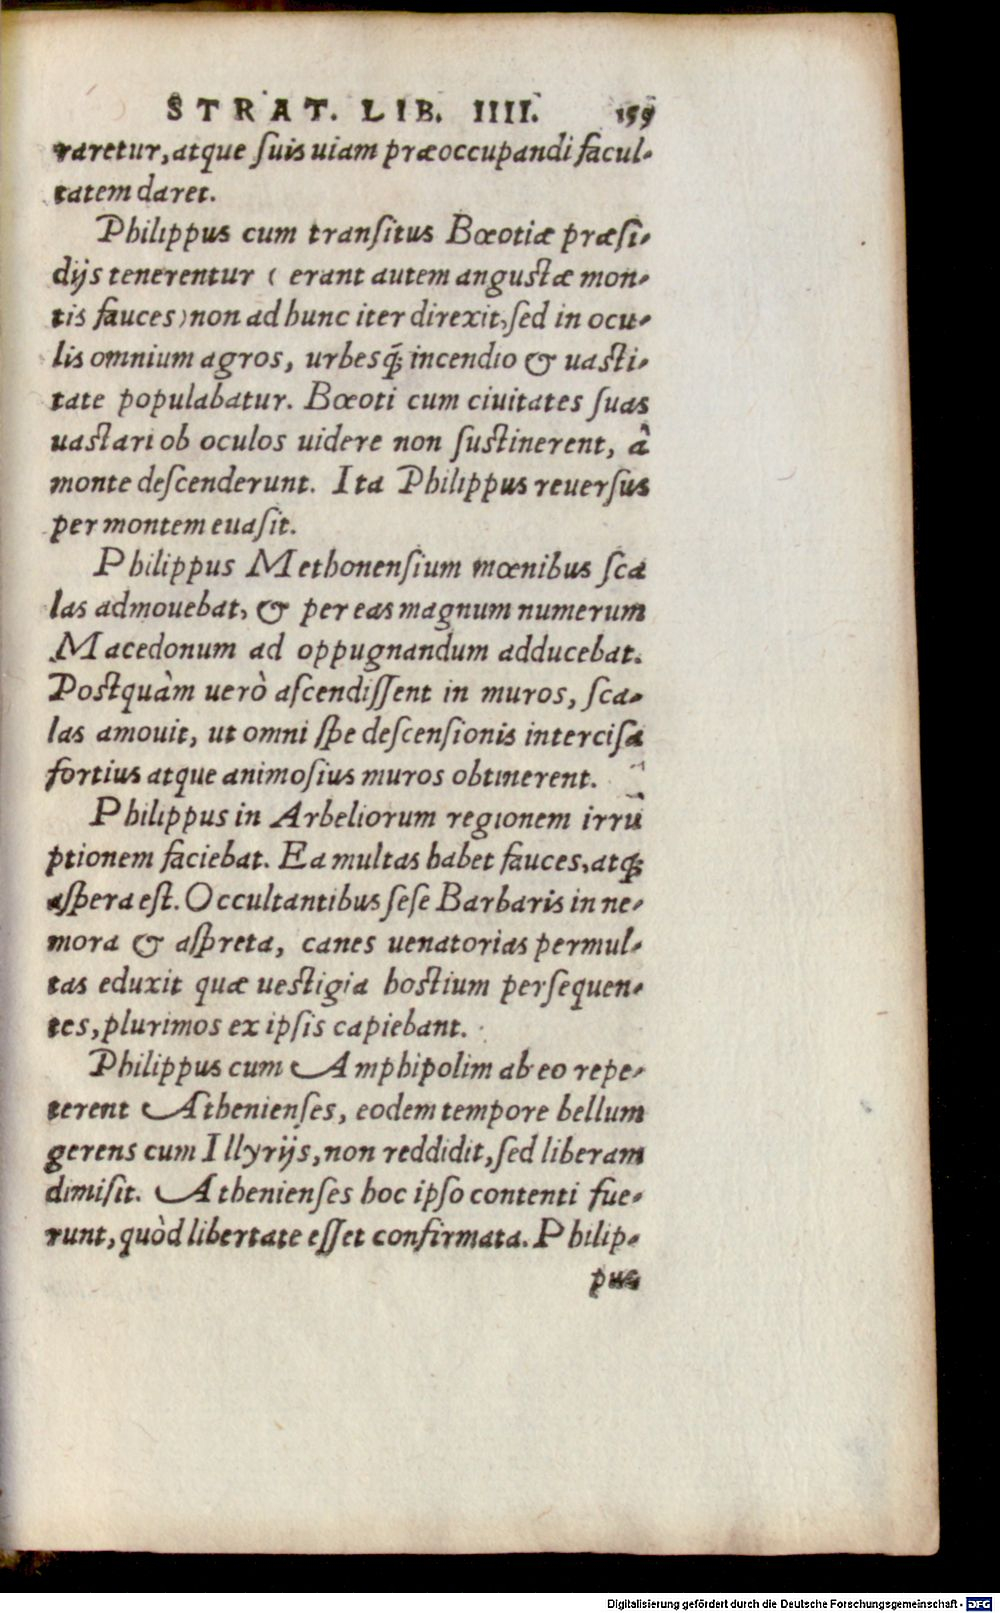 STRAT. LIB. IIII. 159
raretur, atque ſuis uiam præoccupandi facul-
tatem daret.
Philippus cum tranſitus Bœotiæ præſi-
dijs tenerentur ( erant autem anguſtæ mon-
tis fauces) non ad hunc iter direxit, ſed in ocu-
lis omnium agros, urbesq́; incendio & uaſti-
tate populabatur. Bœoti cum ciuitates ſuas
uaſtari ob oculos uidere non ſuſtinerent, à
monte deſcenderunt. Ita Philippus reuerſus
per montem euaſit.
Philippus Methonenſium mœnibus ſca
las admouebat, & per eas magnum numerum
Macedonum ad oppugnandum adducebat.
Poſtquàm uerò aſcendiſſent in muros, ſca-
las amouit, ut omni ſpe deſcenſionis interciſa
fortius atque animoſius muros obtinerent.
Philippus in Arbeliorum regionem irrũ
ptionem faciebat. Ea multas habet fauces, atq;
aſpera eſt. Occultantibus ſeſe Barbaris in ne-
mora & aſpreta, canes uenatorias permul-
tas eduxit quæ ueſtigia hoſtium perſequen-
tes, plurimos ex ipſis capiebant.
Philippus cum Amphipolim ab eo repe-
terent Athenienſes, eodem tempore bellum
gerens cum Illyrijs, non reddidit, ſed liberam
dimiſit. Athenienſes hoc ipſo contenti fue-
runt, quòd libertate eſſet confirmata. Philip-
pus
Digitalisierung gefördert durch die Deutsche Forschungsgemeinschaft - DFG